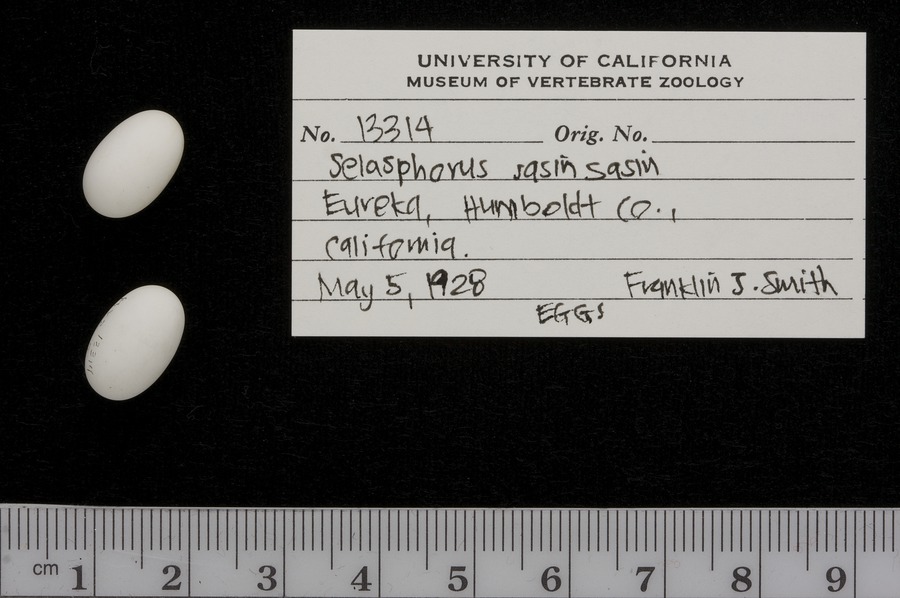 UNIVERSITY OF CALIFORNIA
MUSEUM OF VERTEBRATE ZOOLOGY
No. 13314 Orig. No.
Selasphorus sasin sasin
Eureka, Humboldt Co.,
California.
May 5, 1928 Franklin J. Smith
EGGS
cm 1 2 3 4 5 6 7 8 9